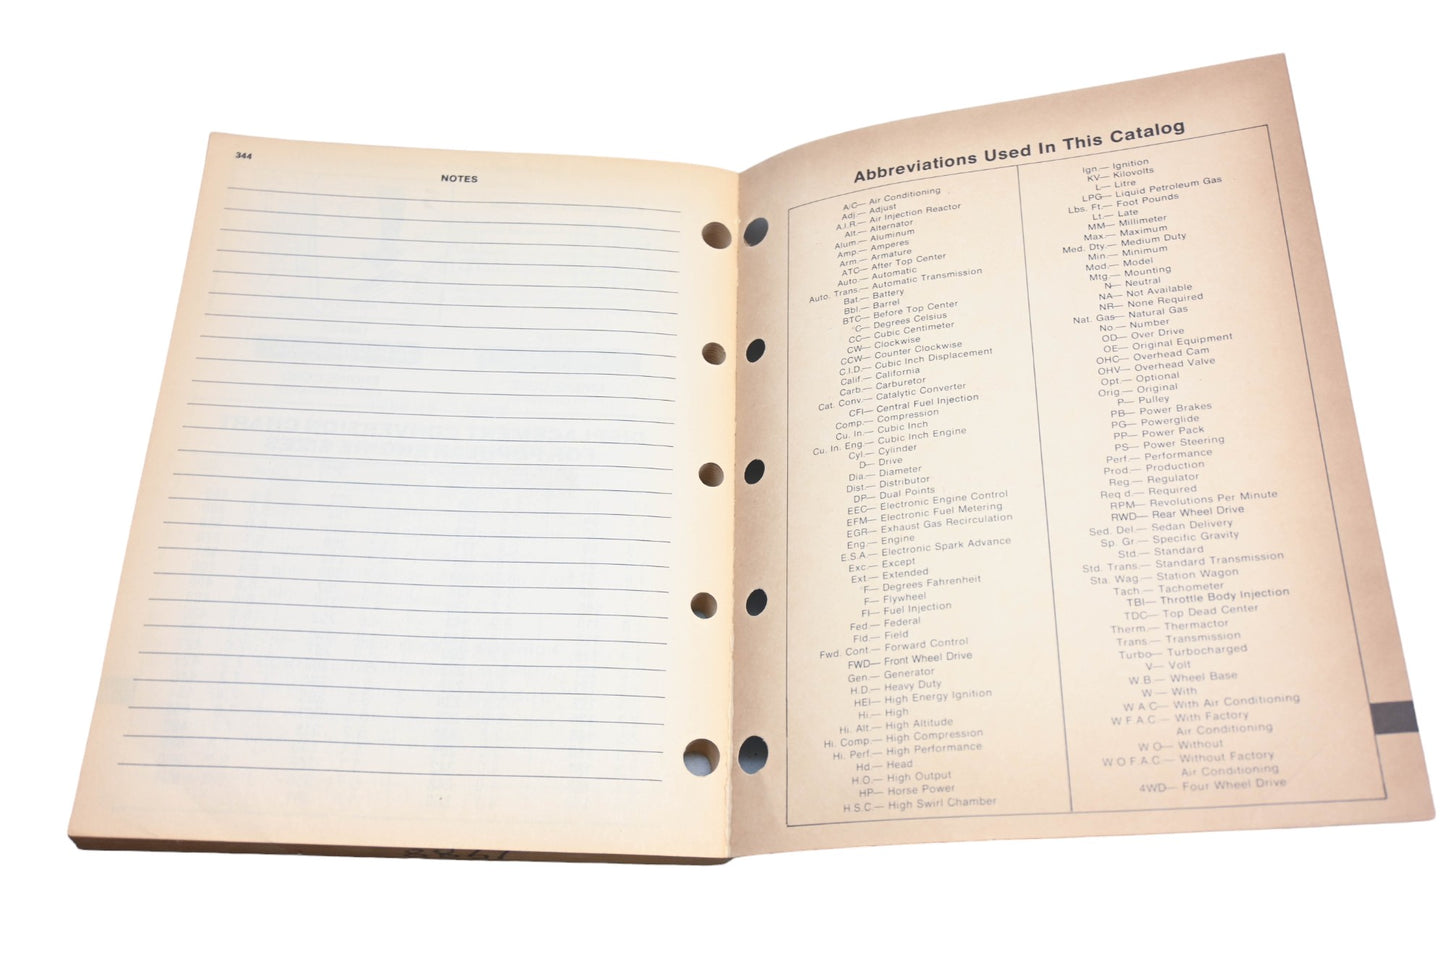 344
NOTES
Abbreviations Used In This Catalog
A/C— Air Conditioning
Adj.— Adjust
A.I.R.— Air Injection Reactor
Alt.— Alternator
Alum.— Aluminum
Amp.— Amperes
Arm.— Armature
ATC— After Top Center
Auto.— Automatic
Auto. Trans.— Automatic Transmission
Bat.— Battery
Bbl.— Barrel
BTC— Before Top Center
°C— Degrees Celsius
CC— Cubic Centimeter
CW— Clockwise
CCW— Counter Clockwise
C.I.D.— Cubic Inch Displacement
Calif.— California
Carb.— Carburetor
Cat. Conv.— Catalytic Converter
CFI— Central Fuel Injection
Comp.— Compression
Cu. In.— Cubic Inch
Cu. In. Eng.— Cubic Inch Engine
Cyl.— Cylinder
D— Drive
Dia.— Diameter
Dist.— Distributor
DP— Dual Points
EEC— Electronic Engine Control
EFM— Electronic Fuel Metering
EGR— Exhaust Gas Recirculation
Eng.— Engine
E.S.A.— Electronic Spark Advance
Exc.— Except
Ext.— Extended
°F— Degrees Fahrenheit
F— Flywheel
FI— Fuel Injection
Fed.— Federal
Fld.— Field
Fwd. Cont.— Forward Control
FWD— Front Wheel Drive
Gen.— Generator
H.D.— Heavy Duty
HEI— High Energy Ignition
Hi.— High
Hi. Alt.— High Altitude
Hi. Comp.— High Compression
Hi. Perf.— High Performance
Hd.— Head
H.O.— High Output
HP— Horse Power
H.S.C.— High Swirl Chamber
Ign.— Ignition
KV— Kilovolts
L— Litre
LPG— Liquid Petroleum Gas
Lbs. Ft.— Foot Pounds
Lt.— Late
MM— Millimeter
Max.— Maximum
Med. Dty.— Medium Duty
Min.— Minimum
Mod.— Model
Mtg.— Mounting
N— Neutral
NA— Not Available
NR— None Required
Nat. Gas— Natural Gas
No.— Number
OD— Over Drive
OE— Original Equipment
OHC— Overhead Cam
OHV— Overhead Valve
Opt.— Optional
Orig.— Original
P— Pulley
PB— Power Brakes
PG— Powerglide
PP— Power Pack
PS— Power Steering
Perf.— Performance
Prod.— Production
Reg.— Regulator
Req'd.— Required
RPM— Revolutions Per Minute
RWD— Rear Wheel Drive
Sed. Del.— Sedan Delivery
Sp. Gr.— Specific Gravity
Std.— Standard
Std. Trans.— Standard Transmission
Sta. Wag.— Station Wagon
Tach.— Tachometer
TBI— Throttle Body Injection
TDC— Top Dead Center
Therm.— Thermactor
Trans.— Transmission
Turbo— Turbocharged
V— Volt
W.B.— Wheel Base
W/— With
W/A.C.— With Air Conditioning
W/F.A.C.— With Factory
Air Conditioning
W/O— Without
W/O F.A.C.— Without Factory
Air Conditioning
4WD— Four Wheel Drive